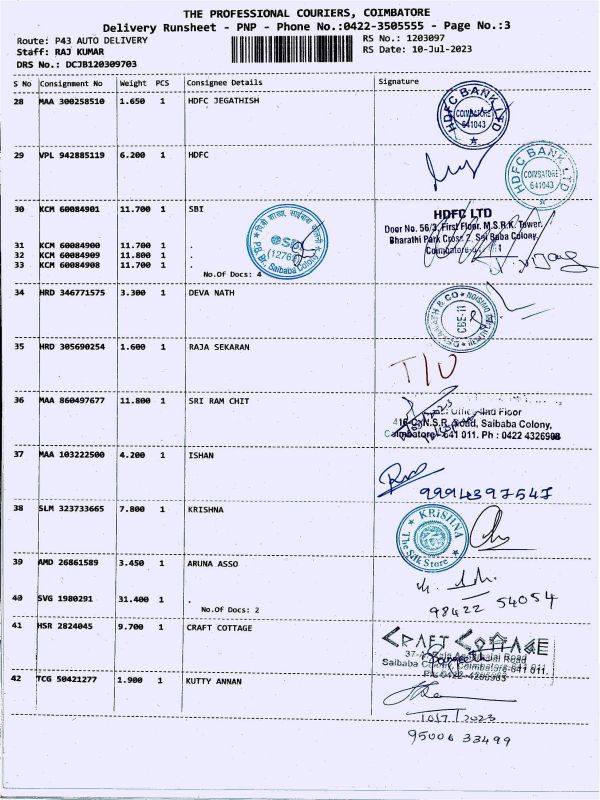 THE PROFESSIONAL COURIERS, COIMBATORE
Delivery Runsheet - PNP - Phone No.:0422-3505555 - Page No.:3
Route: P43 AUTO DELIVERY RS No.: 1203097
Staff: RAJ KUMAR RS Date: 10-Jul-2023
DRS No.: DCJB120309703
S No Consignment No Weight PCS Consignee Details Signature
28 MAA 300258510 1.650 1 HDFC JEGATHISH
HDFC BANK LTD
COIMBATORE
641043
29 VPL 942885119 6.200 1 HDFC
HDFC BANK LTD
COIMBATORE
641043
30 KCM 60084901 11.700 1 SBI
HDFC LTD
Door No. 56/3, First Floor, M.S.R.K. Tower,
Bharathi Park Cross 2, Sai Baba Colony,
31 KCM 60084900 11.700 1 .
32 KCM 60084909 11.800 1 .
33 KCM 60084908 11.700 1 .
No.Of Docs: 4
Saibaba Colony
34 HRD 346771575 3.300 1 DEVA NATH
35 HRD 305690254 1.600 1 RAJA SEKARAN
T/U
36 MAA 860497677 11.800 1 SRI RAM CHIT
Floor
N.S.R. Road, Saibaba Colony,
Coimbatore - 641 011. Ph : 0422 4326908
37 MAA 103222500 4.200 1 ISHAN
9994397547
38 SLM 323733665 7.800 1 KRISHNA
KRISHNA
The Silk Store
39 AMD 26861589 3.450 1 ARUNA ASSO
40 SVG 1980291 31.400 1 .
No.Of Docs: 2
98422 54054
41 HSR 2824045 9.700 1 CRAFT COTTAGE
CRAFT COTTAGE
Saibaba Colony, Coimbatore-641 011.
42 TCG 50421277 1.900 1 KUTTY ANNAN
10/7/2023
95006 33499